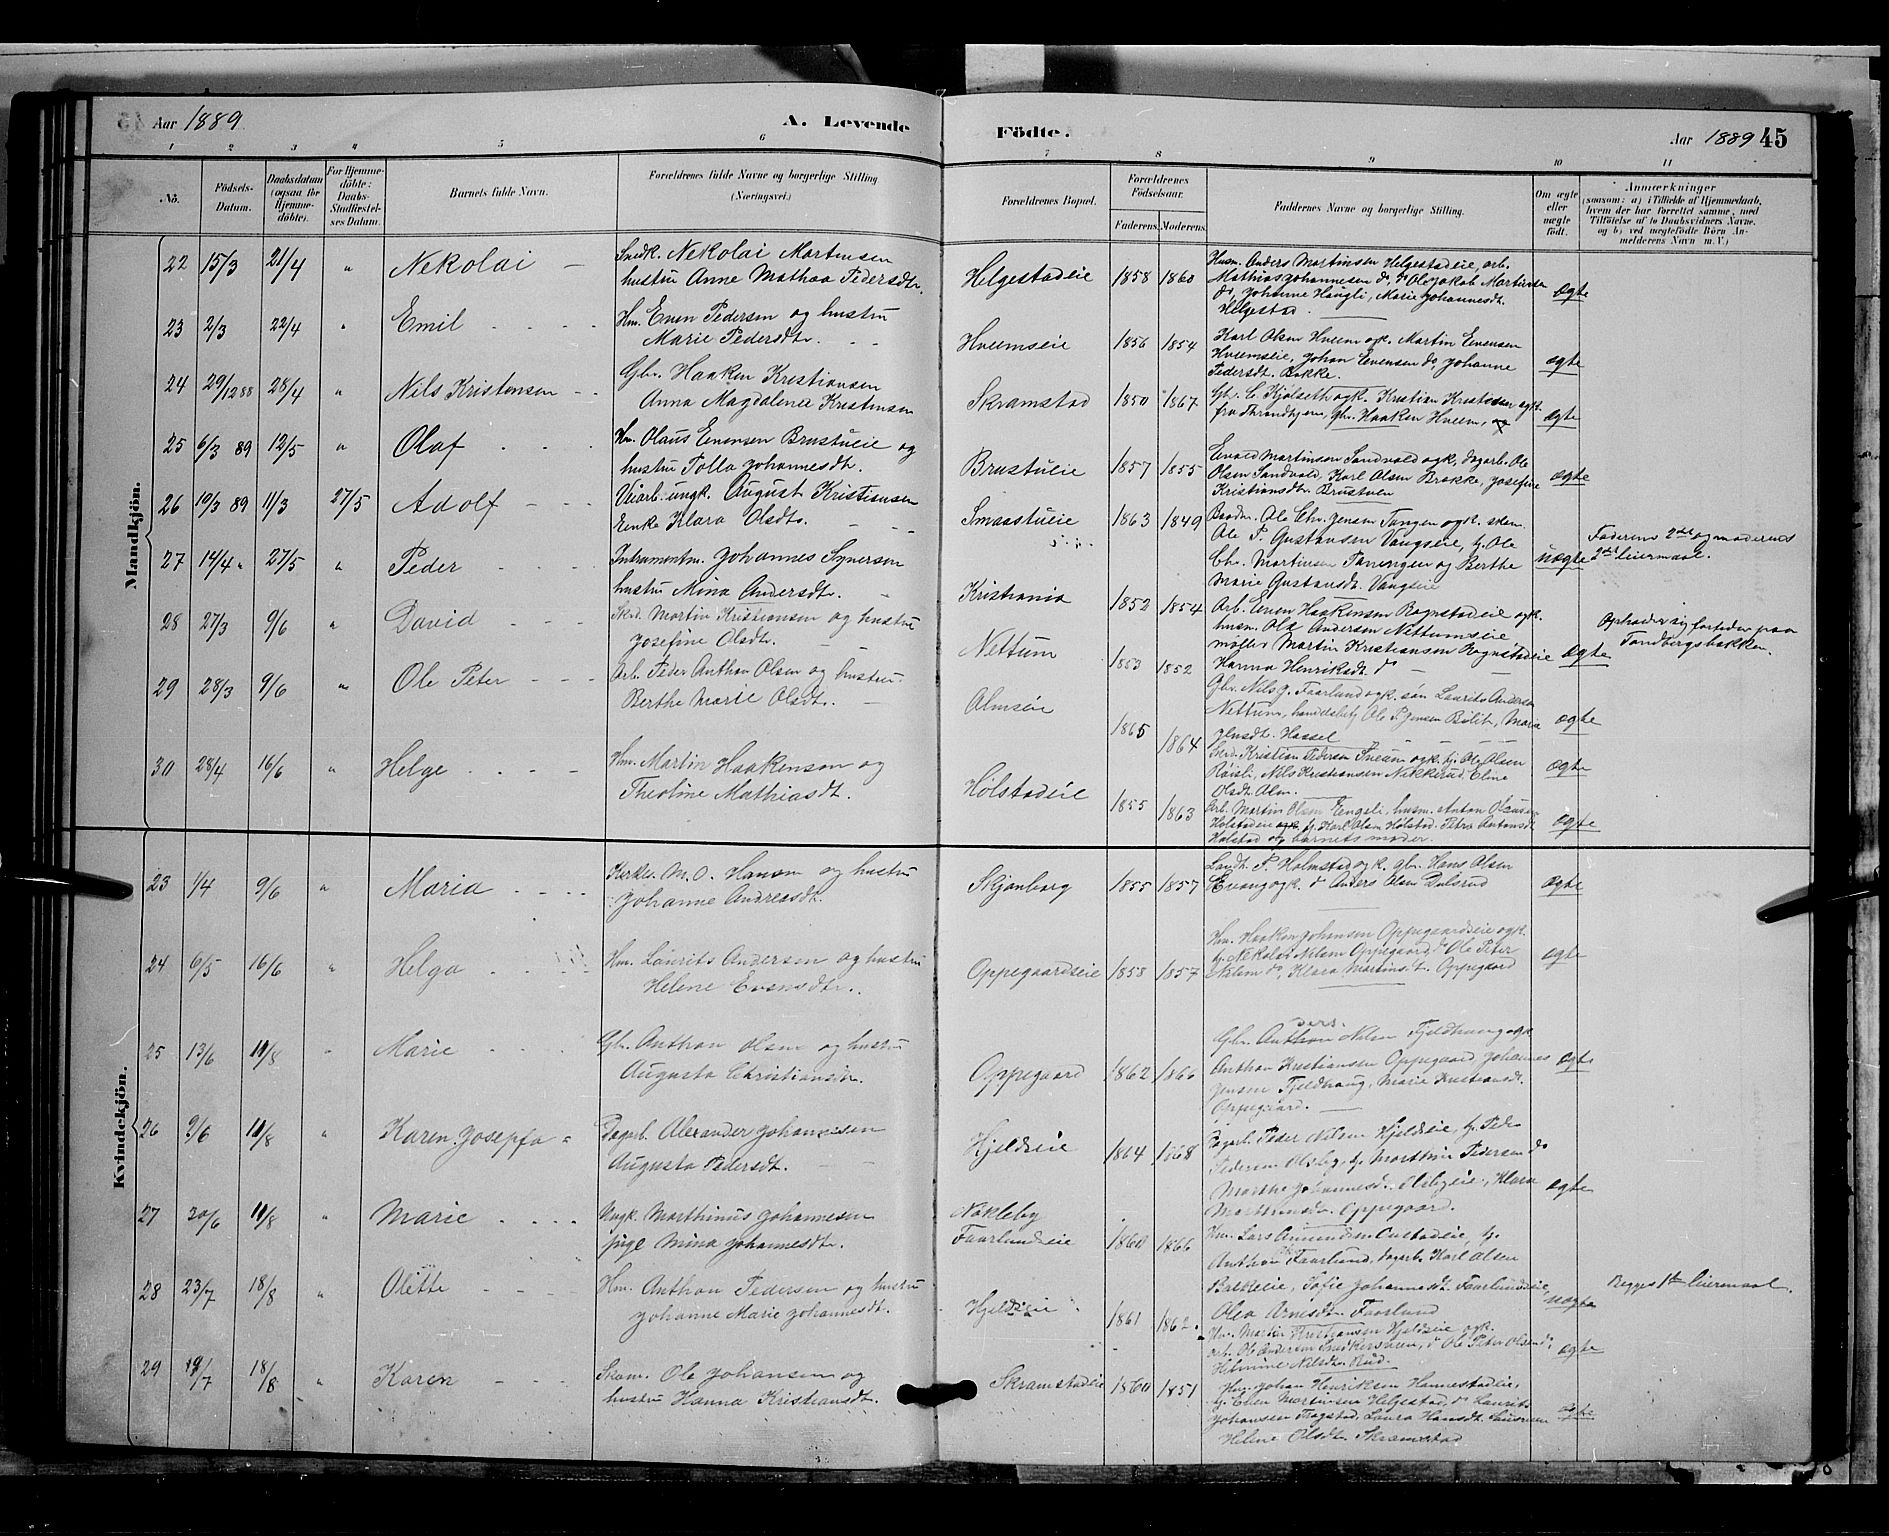 Aar 1889.
A. Levende
Födte.
Aar 1889 45
1 2 3 4 5 6 7 8 9 10 11
No.
Födsels-
Datum.
Daabsdatum
(ogsaa for
Hjemme-
döbte).
For Hjemme-
döbte:
Daabs-
Stadfæstel-
ses Datum.
Barnets fulde Navn.
Forældrenes fulde Navne og borgerlige Stilling
(Næringsvei.)
Forældrenes Bopæl.
Forældrenes
Födselsaar.
Faderens. Moderens.
Faddernes Navne og borgerlige Stilling.
Om ægte
eller
uægte
födt.
Anmærkninger
(saasom: a) i Tilfælde af Hjemmedaab,
hvem der har forrettet samme, med
Tilföielse af to Daabsvidners Navne.
og b) ved uægtefödte Börn An-
melderens Navn m. V.)
Mandkjön.
22 15/3 21/4 " Nekolai
Snedk. Nekolai Martinsen
hustru Anne Mathea Pedersdtr.
Helgestadeie 1858 1860
Husm. Anders Martinsen Helgestadeie, arb.
Mathias Johannesen do, do Ole Jakob Martinsen
do, Johanne Haugli, Marie Johannesdt.
Helgestad.
ægte
23 2/3 22/4 " Emil
Hm. Even Pedersen og hustru
Marie Pedersdtr.
Hveemseie 1856 1854
Karl Olsen Hveem ogk. Martin Evensen
Hveemseie, Johan Evensen do, Johanne
Pedersdt. Bakke.
ægte
24 29/12 88 28/4 " Nils Kristensen
Gbr. Haaken Kristiansen
Anna Magdalena Kristensen
Skramstad 1850 1867
Gbr. C. Kjölseth ogk. Kristian Kristensen ogk.
fra Thrandhjem, Gbr. Haaken Hveem,
ægte
25 6/3 89 12/5 " Olaf
Hm. Olaus Evensen Brustueie og
hustru Polla Johannesdt.
Brustueie 1857 1855
Evald Martinsen Sandvold ogk, dagarb. Ole
Olsen Sandvold, Karl Olsen Brakke, Josefine
Kristiansdtr. Brustuen
ægte
26 10/3 89 11/3 27/5 Adolf
Veiarb. ungk. August Kristiansen
Enke Klara Olsdtr.
Smaastueie 1863 1849
Baadm. Ole Chr. Jensen Tangen ogk. skom.
Ole P. Gustavsen Vangseie, tj. Ole
Chr. Martinsen Tanengen og Berthe
Marie Gustavsdt. Vangseie
uægte
Faderens 2det og moderens
2det leiermaal.
27 14/4 " 27/5 " Peder
Intrumentm. Johannes Synersen
hustru Mina Andersdtr.
Kristiania 1852 1854
Arb. Even Haakensen Rognstadeie ogk.
husm. Ole Andersen Nettumseie,
möller Martin Kristiansen Rognstadeie
Hanna Henriksdt. do
ægte
Opholder sig fortiden paa
Tandbergsbakken.
28 27/3 9/6 " David
Skrd. Martin Kristiansen og hustru
Josefine Olsdt.
Nettum 1853 1852
Gbr. Nils J. Faarlund ogk. søn Laurits Andersen
Nettum, handelsbetj. Ole P. Jensen Bilit, Maria
Jensdt. Hassel
ægte
29 28/3 9/6 " Ole Peter
Arb. Peder Anthon Olsen og hustru
Berthe Marte Olsdt.
Almseie 1865 1864
Snd. Kristian Pedersen ogk. tj. Ole Olsen
Röisli, Nils Kristiansen Nekkerud, Eline
Olsdt. Alm.
ægte
30 28/4 16/6 " Helge
Hm. Martin Haakensen og
Theoline Mathiasdt.
Holstadeie 1855 1863
Arb. Martin Olsen Engeli, husm. Anton Olausen
Holstadeie ogk. tj. Karl Olsen Holstad. Petra Antonsdt.
Holstad og barnets moder
ægte
Kvindekjön.
23 1/4 9/6 " Maria
Kerkes. M. O. Hansen og hustru
Johanne Andreasdt.
Skjønberg 1855 1857
Landh. P. Holmstad ogk. gbr. Hans Olsen
Evang ogk. do Anders Olsen Dulsrud
ægte
24 6/5 16/6 " Helga
Hm. Laurits Andersen og hustru
Helene Evensdtr.
Oppegaardseie 1858 1857
Hm. Haaken Johansen Oppegaardseie ogk.
tj. Nekolai Nilsen Oppegaard, do Ole Peter
Nilsen do, Klara Martinsdt. Oppegaard
ægte
25 13/6 11/8 " Marie
Gbr. Anthon Olsen og hustru
Augusta Christiansdtr.
Oppegaard 1862 1866
Gbr. Anthon Nilsen Fjeldhaug ogk.
Anthon Kristiansen Oppegaard Johannes
Jensen Fjeldhaug, Marie Kristiansdt.
Oppegaard.
ægte
26 9/6 11/8 " Karen Josepfa
Dagarb. Alexander Johannesen
Augusta Pedersdt.
Hjeldseie 1864 1868
Dagarb. Peder Nilsen Hjeldseie, tj. Peder
Pedersen Olsby, tj. Marthin Pedersen do
Marthe Johannesdt. Olsbyeie, Klara
Marthinsdt. Oppegaard.
ægte
27 30/6 11/8 " Marie
Ungk. Marthinus Johannesen
pige Mina Johannesdtr.
Nökleby
Faarlundseie 1860 1866
Hm. Lars Amundsen Onstadeie, tj.
Anthon Faarlund, dagarb. Karl Olsen
Bakkeeie, Sofie Johannesdt. Faarlundseie,
Olea Arnesdt. Faarlund
uægte
Begges 1ste leiermaal.
28 23/7 18/8 " Olette
Hm. Anthon Pedersen og hustru
Johanne Marie Johannesdt.
Hjeldseie 1861 1862.
Hm. Martin Kristiansen Hjeldseie ogk.
Arb. Ole Andersen Snedkersveen, do Ole Peter Olsen do,
Helmine Nilsdt. Rud.
ægte
29 19/7 18/8 " Karen
Skom. Ole Johansen og
hustru Hanna Kristiansdt.
Skramstadeie 1860 1851
Hm. Johan Henriksen Hannestadeie,
tj. Even Martinsen Helgestad, do Laurits
Johansen Fragstad, Laura Hansdt.
Helene Olsdt. Skramstad
ægte